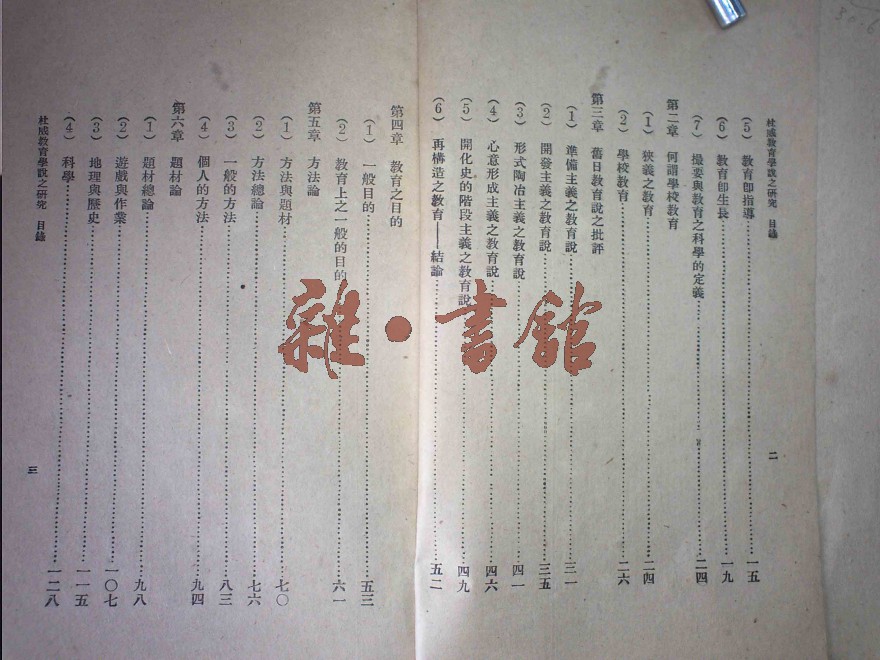 杜威教育學說之研究　目錄
二
（5）教育卽指導……一五
（6）教育卽生長……一九
（7）撮要與教育之科學的定義……二四
第二章　何謂學校教育
（1）狹義之教育……二四
（2）學校教育……二六
第三章　舊日教育說之批評
（1）準備主義之教育說……三一
（2）開發主義之教育說……三五
（3）形式陶冶主義之教育說……四一
（4）心意形成主義之教育說……四六
（5）開化史的階段主義之教育說……四九
（6）再構造之教育——結論……五二
第四章　教育之目的
（1）一般目的……五三
（2）教育上之一般的目的……六一
第五章　方法論
（1）方法與題材……七〇
（2）方法總論……七六
（3）一般的方法……八三
（4）個人的方法……九四
第六章　題材論
（1）題材總論……九八
（2）遊戲與作業……一〇七
（3）地理與歷史……一一五
（4）科學……一二八
杜威教育學說之研究　目錄
三
雜·書館